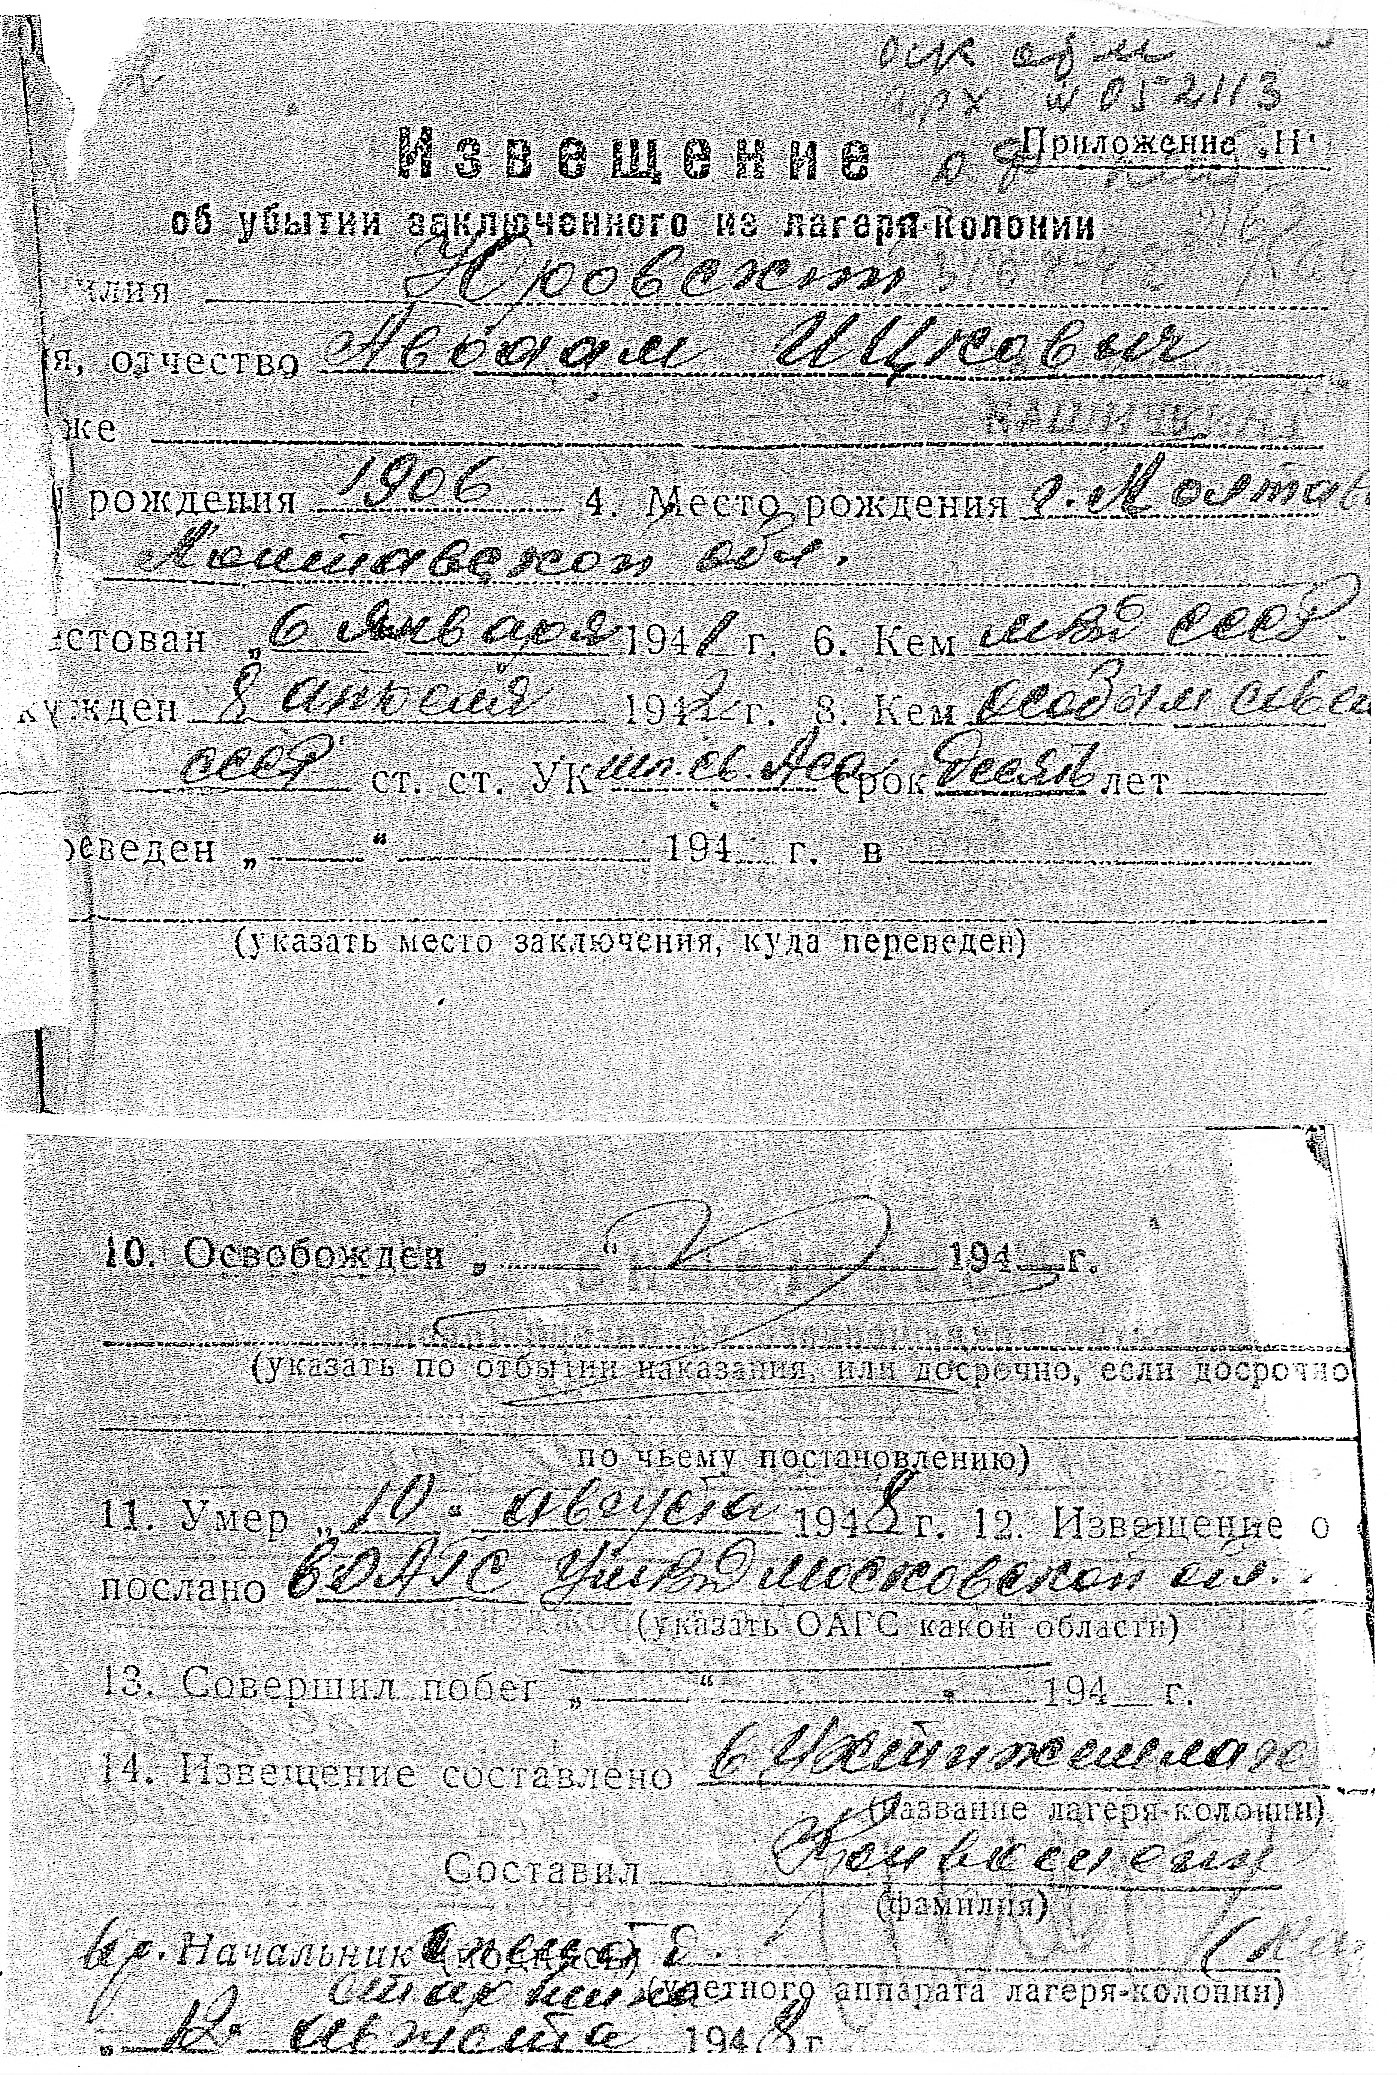 № 052113
Приложение „Н"
Извещение
об убытии заключенного из лагеря-колонии
илия Юровский
я, отчество Авраам Ицкович
же
рождения 1906 4. Место рождения г. Полтав
Полтавской обл.
естован „6 января 1941 г. 6. Кем МВД СССР.
сужден 8 апреля 1942 г. 8. Кем Особым сове
СССР ст. ст. УК срок десять лет
реведен „ “ 194 г. в
(указать место заключения, куда переведен)
10. Освобожден „ “ 194 г.
(указать по отбытии наказания, или досрочно, если досрочно
по чьему постановлению)
11. Умер „10" августа 1948 г. 12. Извещение о
послано в ОАГС УМВД Московской обл.
(указать ОАГС какой области)
13. Совершил побег „ “ 194 г.
14. Извещение составлено в Ухтижемлаге
(название лагеря-колонии)
Составил
(фамилия)
вр. Начальник
(учетного аппарата лагеря-колонии)
„12" августа 1948 г.